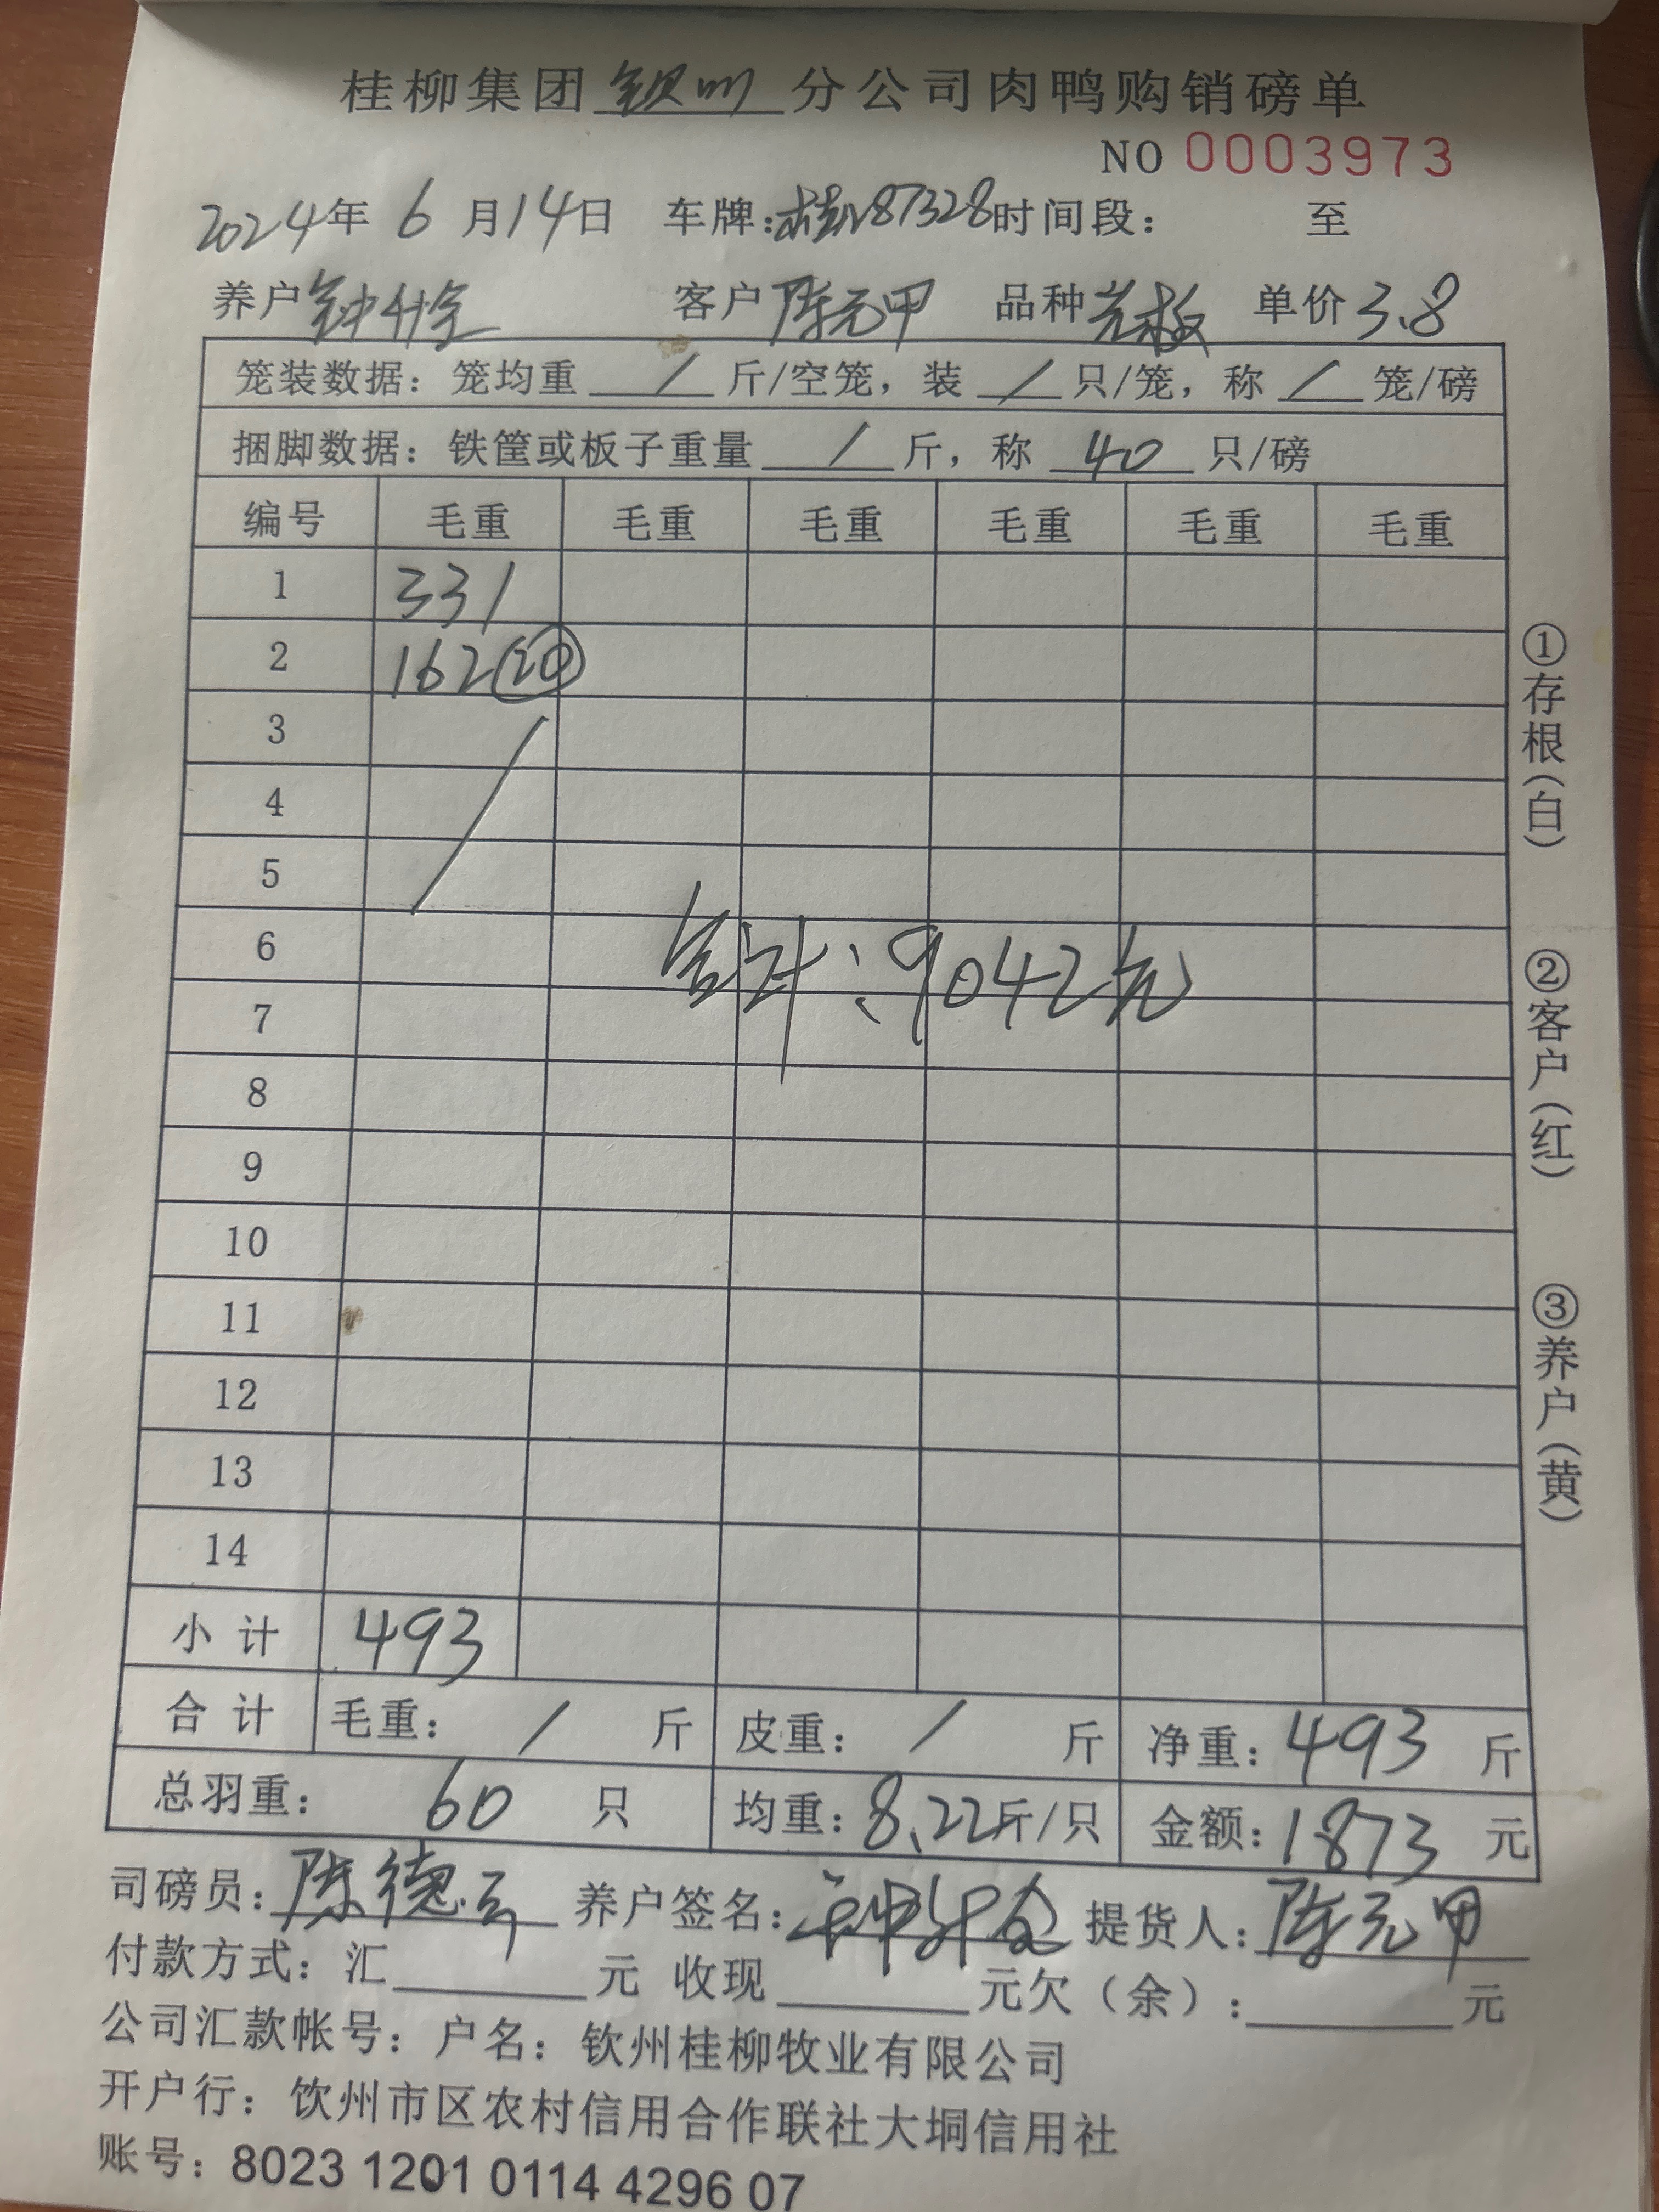 桂柳集团 钦州 分公司肉鸭购销磅单
NO 0003973
2024年 6 月14日 车牌:桂N87328时间段: 至
养户 钟 客户 陈元甲 品种 单价 3.8
笼装数据: 笼均重 / 斤/空笼, 装 / 只/笼, 称 / 笼/磅
捆脚数据: 铁筐或板子重量 / 斤, 称 40 只/磅
编号 毛重 毛重 毛重 毛重 毛重 毛重
1 331
2 162 20
3
4
5
6
合计:9042元
7
8
9
10
11
12
13
14
小计 493
合计 毛重: / 斤 皮重: / 斤 净重: 493 斤
总羽重: 60 只 均重: 8.22斤/只 金额: 1873 元
司磅员: 陈德 养户签名: 钟 提货人: 陈元甲
付款方式: 汇 元 收现 元欠(余): 元
公司汇款帐号: 户名: 钦州桂柳牧业有限公司
开户行: 饮州市区农村信用合作联社大垌信用社
账号: 8023 1201 0114 4296 07
①存根(白)
②客户(红)
③养户(黄)